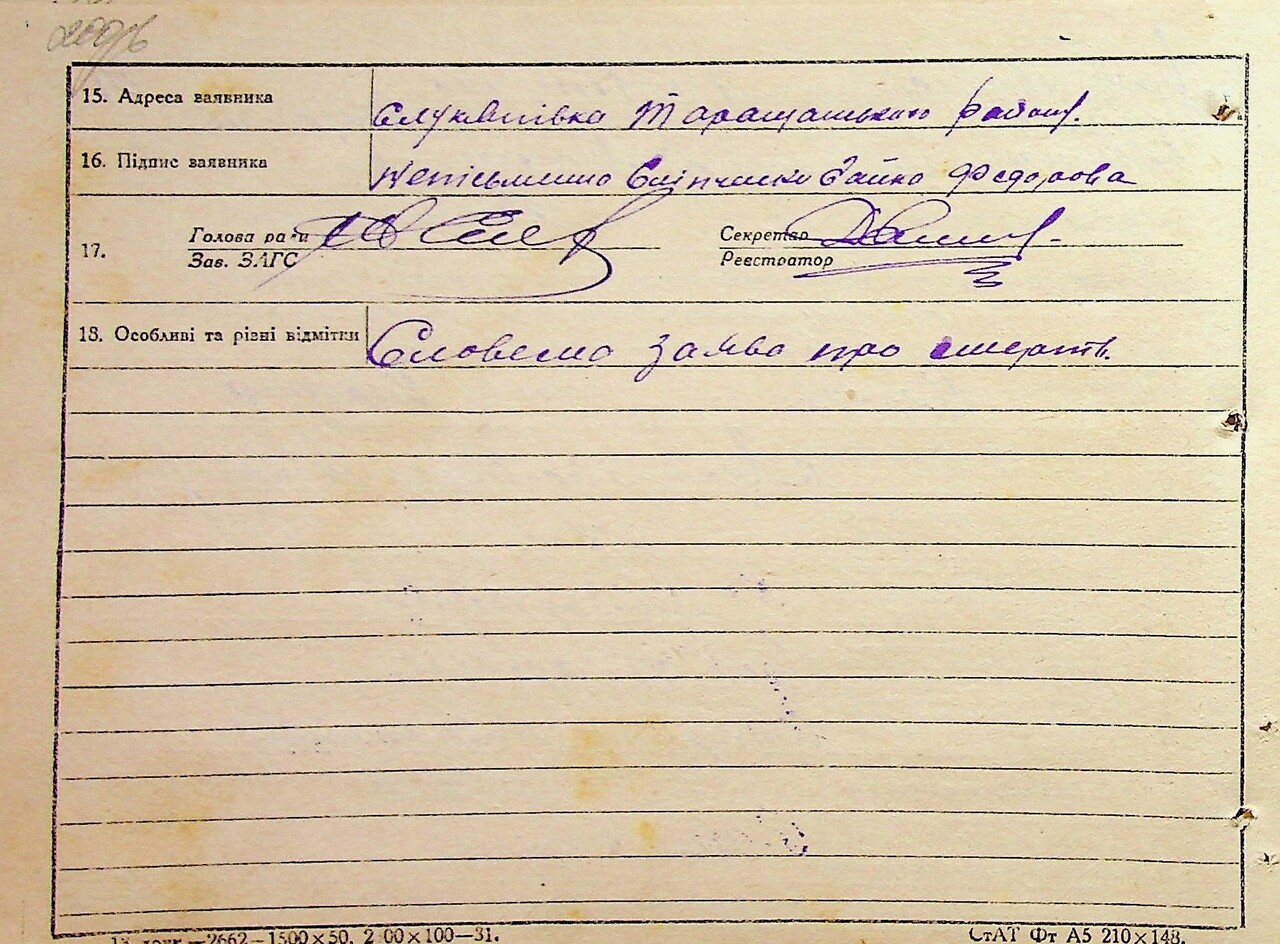 15. Адреса заявника
с. Лукіянівка Таращанського району.
16. Підпис заявника
Непісьменна Сліпченко Гапка Федорова
17. Голова ради
Зав. ЗАГС
Секретар
Реєстратор
18. Особливі та різні відмітки
Словесна заява про смерть.
2662—1500×50. 2 00×100—31.
СтАТ Фт А5 210×148.